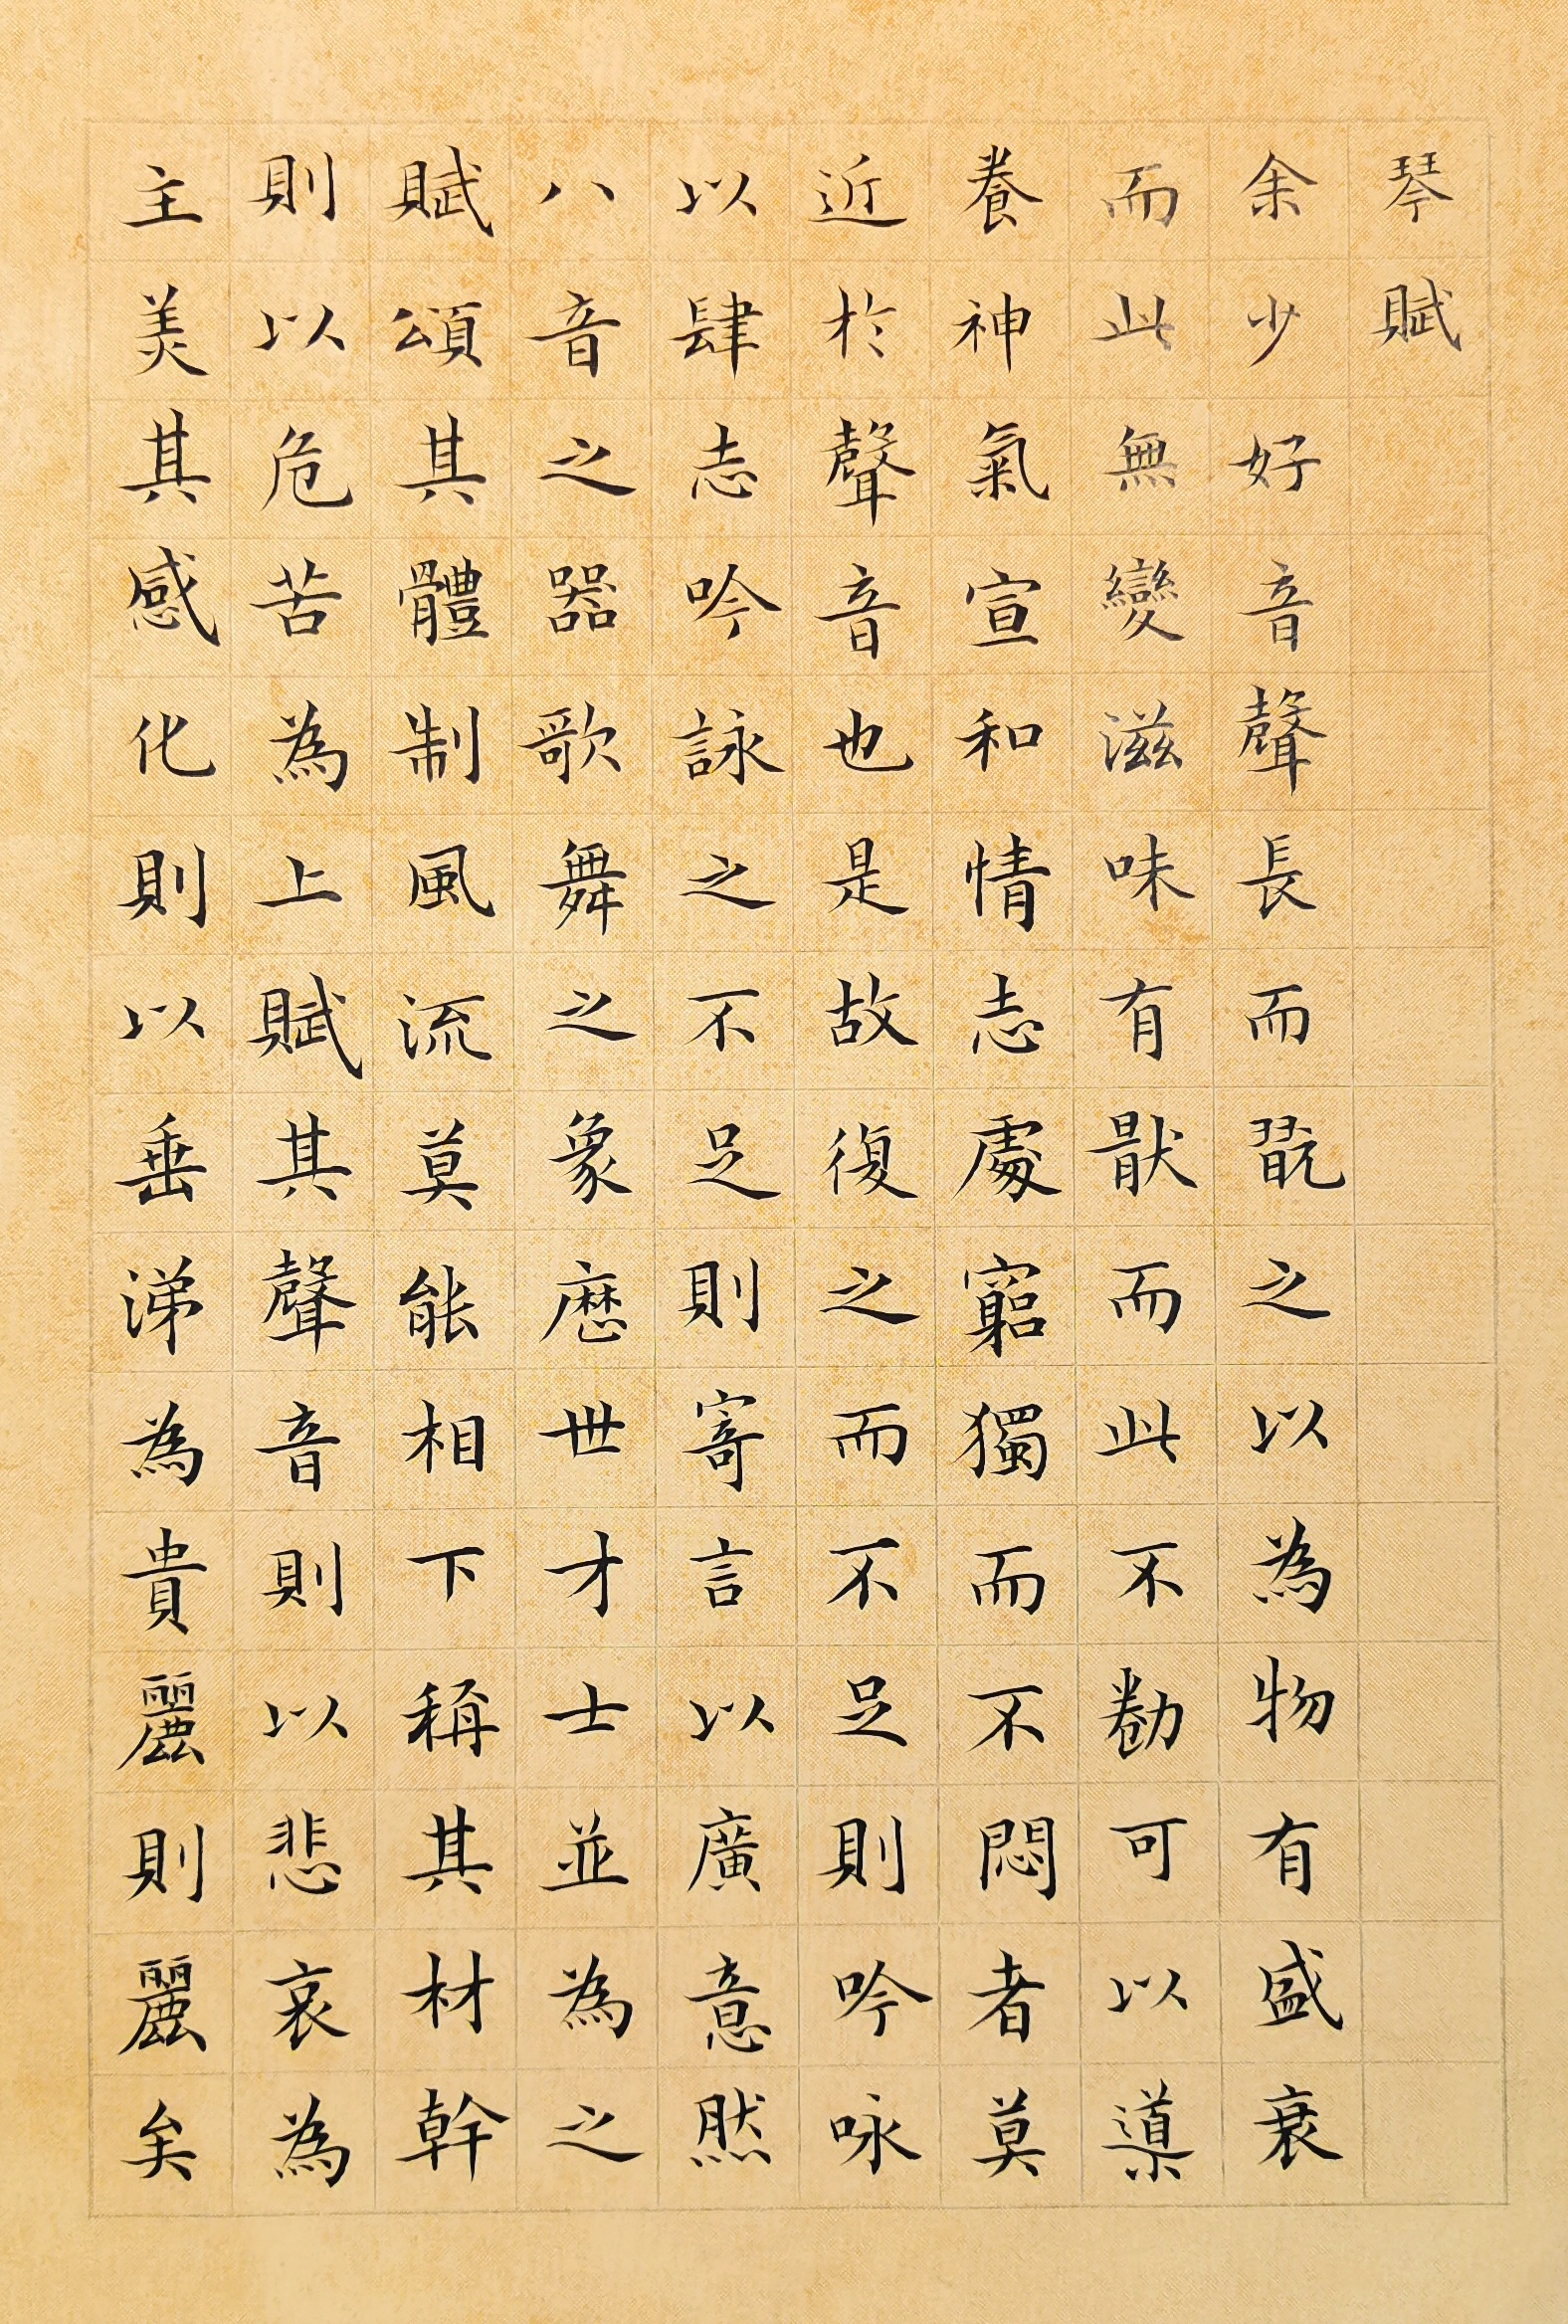 琴賦
余少好音聲長而翫之以為物有盛衰
而此無變滋味有猒而此不勌可以導
養神氣宣和情志處窮獨而不悶者莫
近於聲音也是故復之而不足則吟咏
以肆志吟詠之不足則寄言以廣意然
八音之器歌舞之象歷世才士並為之
賦頌其體制風流莫能相下稱其材幹
則以危苦為上賦其聲音則以悲哀為
主美其感化則以垂涕為貴麗則麗矣